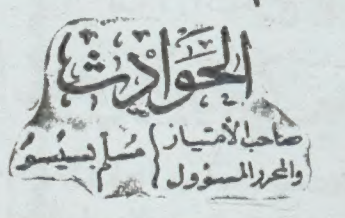 الحَوَادِث
صاحب الأمتياز
والمحرر المسؤول
مسلم بسيسو